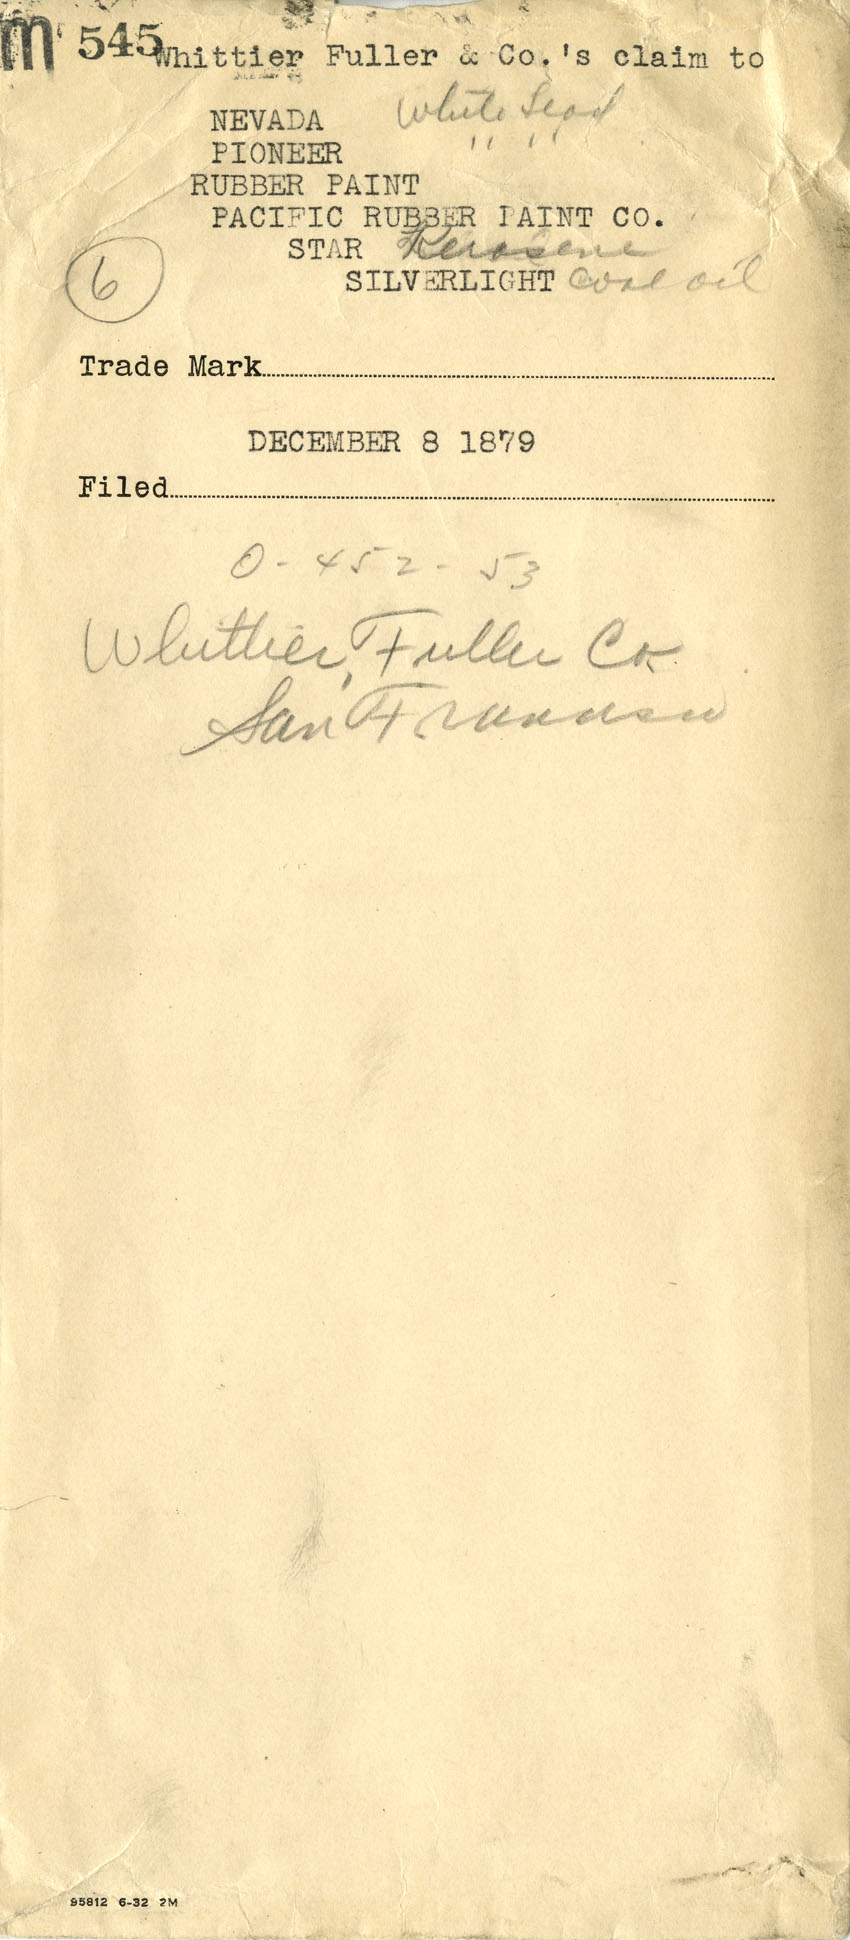 m 545 Whittier Fuller & Co.'s claim to
NEVADA White Lead
PIONEER " "
RUBBER PAINT
PACIFIC RUBBER PAINT CO.
STAR Kerosene
6 SILVERLIGHT Coal oil
Trade Mark
DECEMBER 8 1879
Filed
0-452-53
Whittier, Fuller Co.
San Francisco
95812 6-32 2M